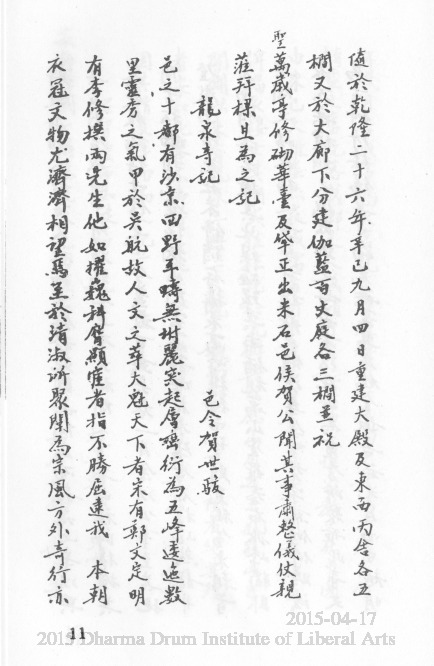 値於乾隆二十六年辛巳九月四日重建大殿及東西丙舍各五
櫊又於大廊下分建伽藍百丈庭各三櫊並祝
聖萬歲亭修砌華臺及蓽正出米石邑侯賀公聞其事肅整儀仗親
蒞拜禖且為之記
龍泉寺記
邑令賀世駿
邑之十都有沙京田野平疇無坿麗突起層巒衍為五峰逶迤數
里靈秀之氣甲於吳航故人文之萃大魁天下者宋有鄭文定明
有李修撰兩先生他如擢巍科膺顯宦者指不勝屈達我 本朝
衣冠文物尤濟濟相望焉至於清淑所聚闡為宗風方外奇行亦
11
2015-04-17
2015 Dharma Drum Institute of Liberal Arts